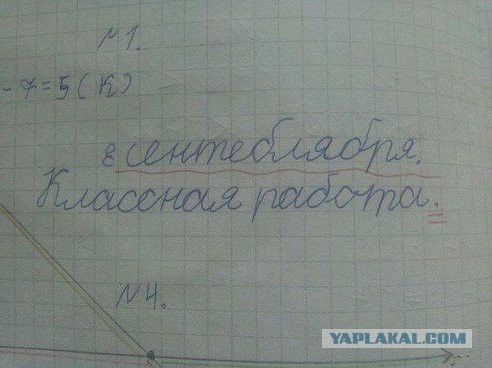 №1.
-7=5(К)
8 сентеблября.
Классная работа.
№4.
YAPLAKAL.COM